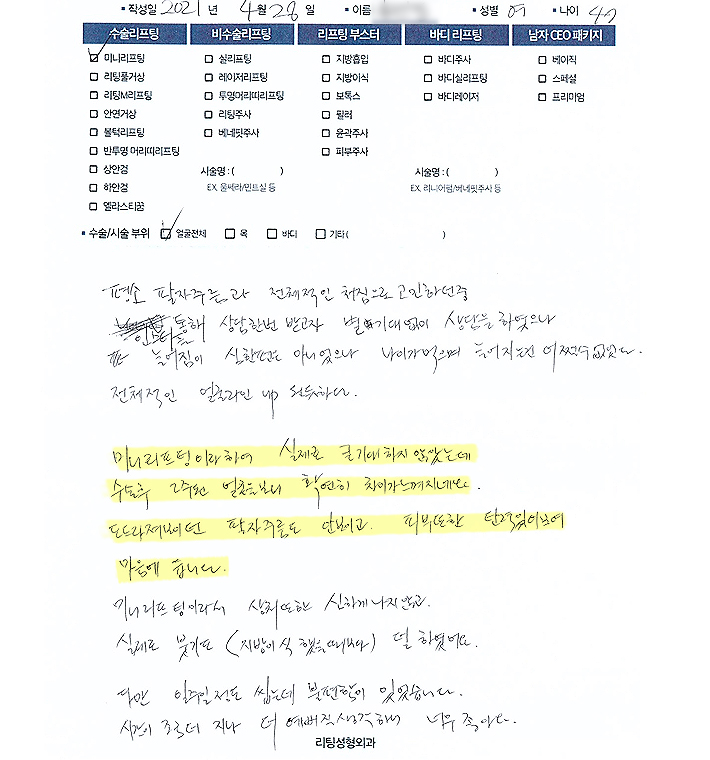 ▪ 작성일 2021 년 4 월 28 일 ▪ 이름 ▪ 성별 여 ▪ 나이 47
수술리프팅 비수술리프팅 리프팅 부스터 바디 리프팅 남자 CEO 패키지
미니리프팅 실리프팅 지방흡입 바디주사 베이직
리팅풀거상 레이저리프팅 지방이식 바디실리프팅 스페셜
리팅M리프팅 투명머리띠리프팅 보톡스 바디레이저 프리미엄
안면거상 리팅주사 필러
볼턱리프팅 베네핏주사 윤곽주사
반투명 머리띠리프팅 피부주사
상안검 시술명 : ( ) 시술명 : ( )
하안검 EX. 울쎄라/민트실 등 EX. 리니어펌/베네핏주사 등
엘라스티꿈
▪ 수술/시술 부위 얼굴전체 목 바디 기타 ( )
평소 팔자주름과 전체적인 처짐으로 고민하던중
통해 상담한번 받고자 별 기대없이 상담을 하였으나
늘어짐이 심한편은 아니었으나 나이가 먹으며 늘어지는건 어쩔수 없었다.
전체적인 얼굴라인 up 원했다.
미니리프팅이라하여 실제로 큰기대하지 않았는데
수술후 2주된 얼굴을보니 확연히 차이가느껴지네요.
도드라져보이던 팔자주름도 안보이고. 피부또한 탄력있어보여
마음에 듭니다.
미니리프팅이라서 상처또한 심하게 나지않고.
실제로 붓기도 (지방이식 했을때보다) 덜 하였어요.
다만 일주일정도 씹는데 불편함이 있었습니다.
시간이 조금더 지나 더 예뻐질생각해 너무 좋아요.
리팅성형외과